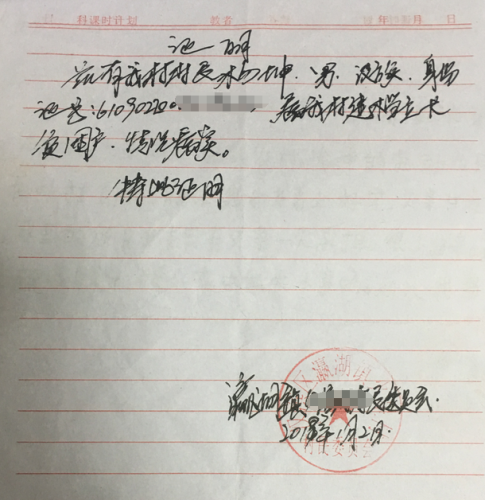 科课时计划 教者 年 月 日
证明
兹有我村村民 坤、男、汉族、身份
证号:6109022 系我村建档立卡
贫困户、情况属实。
特此证明
区瀛湖镇
瀛湖镇 村民委员会
2018年1月2日
村民委员会